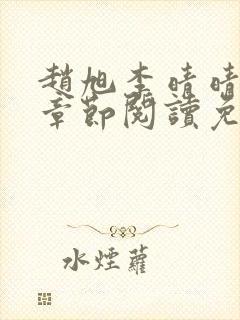 趙旭李晴晴
章節閱讀免
水煙蘿